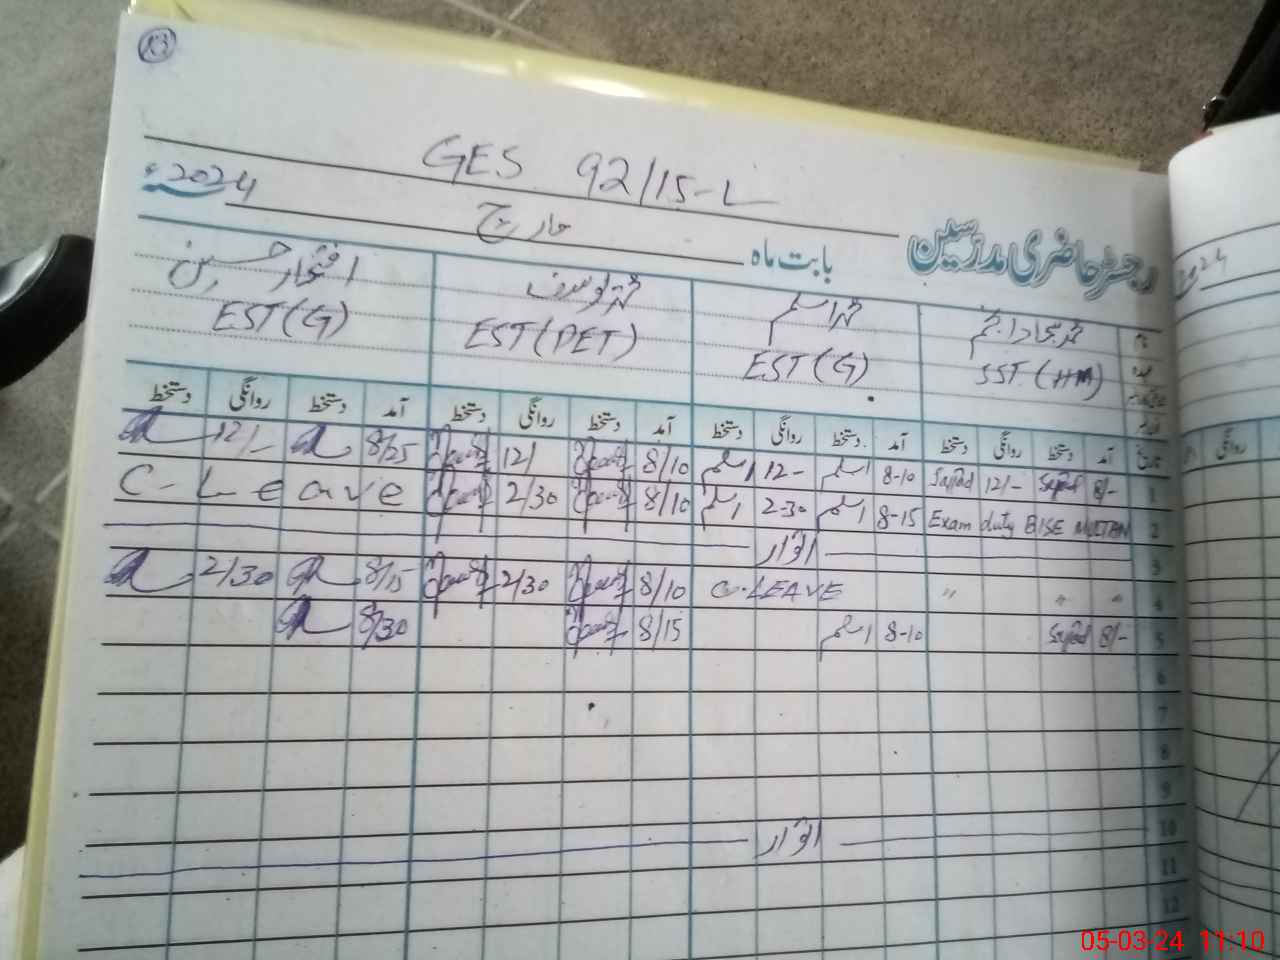 13
GES 92/15-L
رجسٹر حاضری مدرسین بابت ماہ مارچ 2024ء
2024
محمد اسلم افتخار حسین
SST (HM) EST(G) EST(PET) EST(G)
تاریخ آمد دستخط روانگی دستخط آمد دستخط روانگی دستخط آمد دستخط روانگی دستخط آمد دستخط روانگی دستخط
روانگی
1 8/- Sajjad 12/- Sajjad 8-10 اسلم 12- اسلم 8/10 12/ 8/25 12/-
2 Exam duty BISE MULTAN 8-15 اسلم 2-30 اسلم 8/10 2/30 C-Leave
3 اتوار
4 " " " C-LEAVE 8/10 2/30 8/15 2/30
5 8/- Sajjad 8-10 اسلم 8/15 8/30
6
7
8
9
10 اتوار
11
12
05-03-24 11:10